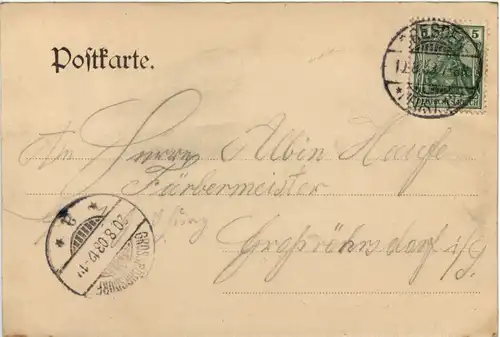 Postkarte.
DRESDEN
5
An Herrn Albin Haufe
Färbermeister
Großröhrsdorf i/S.
20.8.03.
GROSSRÖHRSDORF